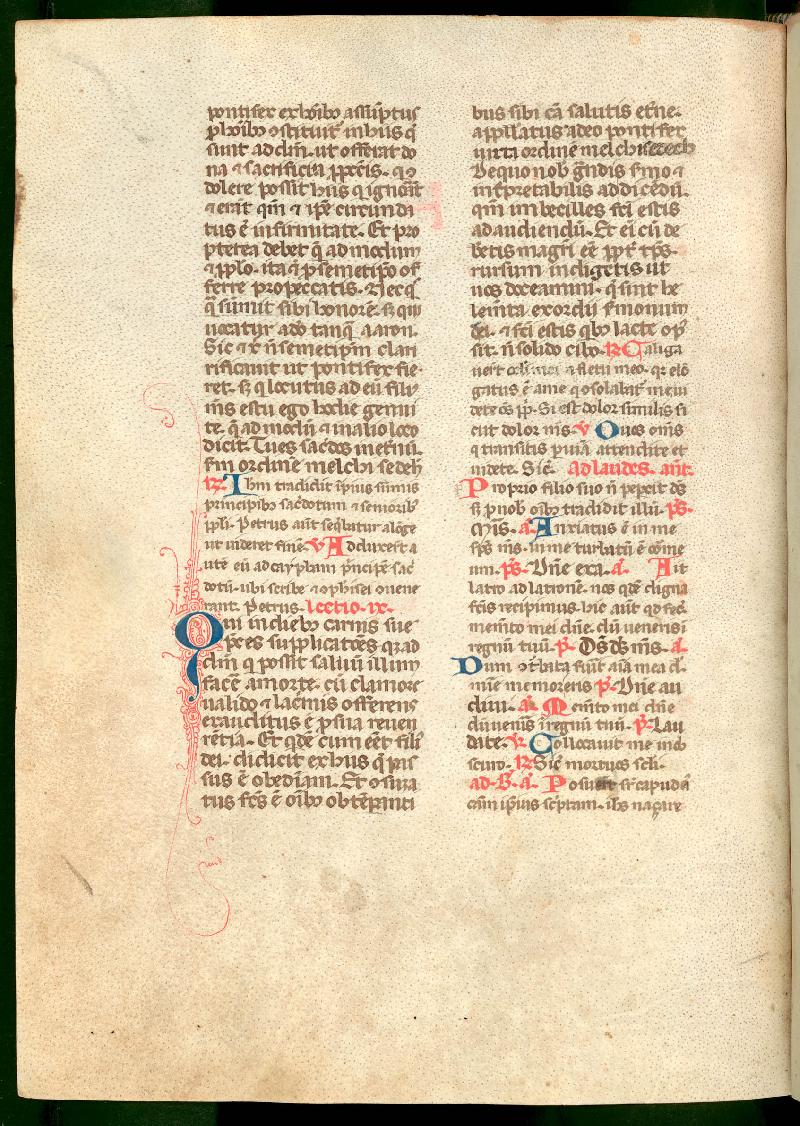 pontifex ex hōibȝ assūptus
p hōibȝ ɔstituit' in hiis q̄
sunt ad dm̄. ut offerat do
na ⁊ sacrificia p pctīs. q̄
dolere possit hiis q ignorāt
⁊ erāt qm̄ ⁊ ip̄e circunda
tus ē infirmitate. Et pro
pterea debet q̄ ad modum
⁊ p pplo. ita ⁊ p semetip̄o of
ferre pro peccatis. Nec q̄
q̄ sumit sibi honorē. sꝫ qui
uocatur a dō tanq̄ aaron.
Sic ⁊ xp̄ n̄ semetip̄m clari
rificauit ut pontifex fie
ret. sꝫ q locutus ad eū fili
us meus es tu ego hodie genui
te. q̄ ad modū ⁊ in alio loco
dicit. Tu es sacdōs in et'nū.
sm̄ ordinē melchisedeh
R. Ihm̄ tradidit īpius sūmis
principibȝ sacdotum ⁊ seniorib'
ppli. Petrus aūt seq̄batur a lōge
ut uideret finē. V Adduxert a
utē eū ad caypham p̄ncipē sac'
dotū. ubi scribe ⁊ ophisei ɔuene
rant. Petrus. Lectio .ix.
Qui in diebȝ carnis sue
p̄ces supplicatōes q̄ ad
dm̄ q possit saluū illum
facē a morte. cū clamore
ualido ⁊ lac'mis offerens
exauditus ē p sua reuen
rētia. Et qdē cum eēt fili'
dei. didicit ex hiis q pas
sus ē obediām. Et ɔsūa
tus fcs̄ ē oībȝ obtēpanti
bus sibi cā salutis et'ne.
appllatus a deo pontifex
iuxta ordinē melchisedech
De quo nob' g̃ndis s'mo ⁊
int'pretabilis ad dicēdū.
qm̄ imbecilles fc̄i estis
ad audiendū. Et ei cū de
betis magr̄i eē ppt' tp̄s.
rursum indigetis ut
uos doceamini. q̄ sint he
lem̄ta exordii s'monum
dei. ⁊ fc̄i estis qbȝ lacte op'
sit. n̄ solido cibo. R. Caliga
uer̄t oc̄li mei a fletu meo. qr elō
gatus ē a me q ɔsolabat' me ui
dete oēs pp̄li. Si est dolor similis si
cut dolor m̄s. V O uos om̄s
q transitis p uiā attendite et
uidete. Si ē. Ad laudes. ant.
Proprio filio suo n̄ pepercit ds̄
sꝫ p nob' oībȝ tradidit illū. ps.
Mis. a. Anxiatus ē in me
sps̄ m̄s. in me turbatū ē cor me
um. ps. Dn̄e exa. a. Ait
latro ad latronē. nos qdē digna
fc̄is recipimus. hic aūt qd fec̄.
mem̄to mei dn̄e. dū uenersi i
regnū tuū. p. Ds̄ ds̄ m̄s. a.
Dum ɔt'bata fuīt aīa mea d.
mīe memor eris p. Dn̄e au
diui. a. Mem̄to mei dn̄e
dū uenīs ī regnū tuū. p. Lau
date. V. Collocauit me in ob
scuro. R. Sic̄ mortuos sc̄li.
ad .B. a. Posuert sr̄ caput
cām ip̄ius sc'ptam. ih̄s naçare